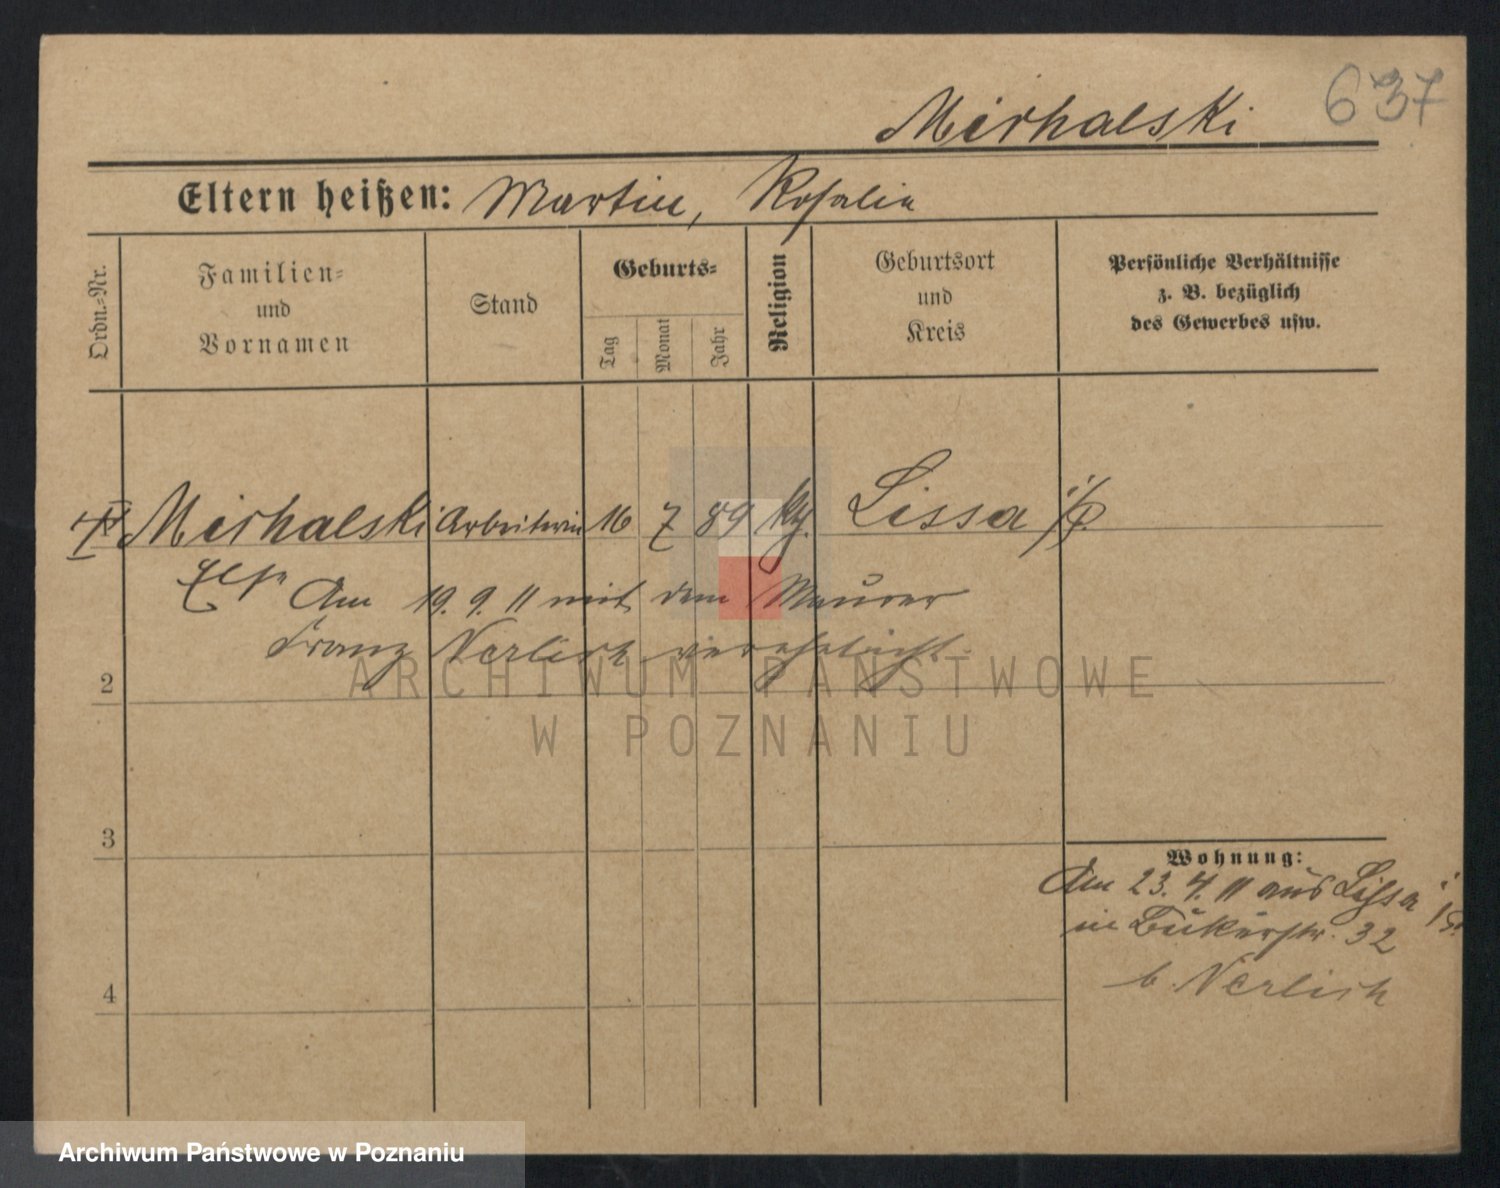 637
Michalski
Eltern heißen: Martin, Rosalia
Ordn.=Nr.
Familien=
und
Vornamen
Stand
Geburts=
Tag
Monat
Jahr
Religion
Geburtsort
und
Kreis
Persönliche Verhältnisse
z. B. bezüglich
des Gewerbes usw.
Michalski Arbeiterin 16 7 89 Lissa i/P.
Am 19. 9. 11 mit dem Maurer
Franz Nerlich verehelicht.
2
3
4
Wohnung:
Am 23. 4. 11 aus Lissa
in Bukerstr. 32
b. Nerlich
ARCHIWUM PAŃSTWOWE
W POZNANIU
Archiwum Państwowe w Poznaniu